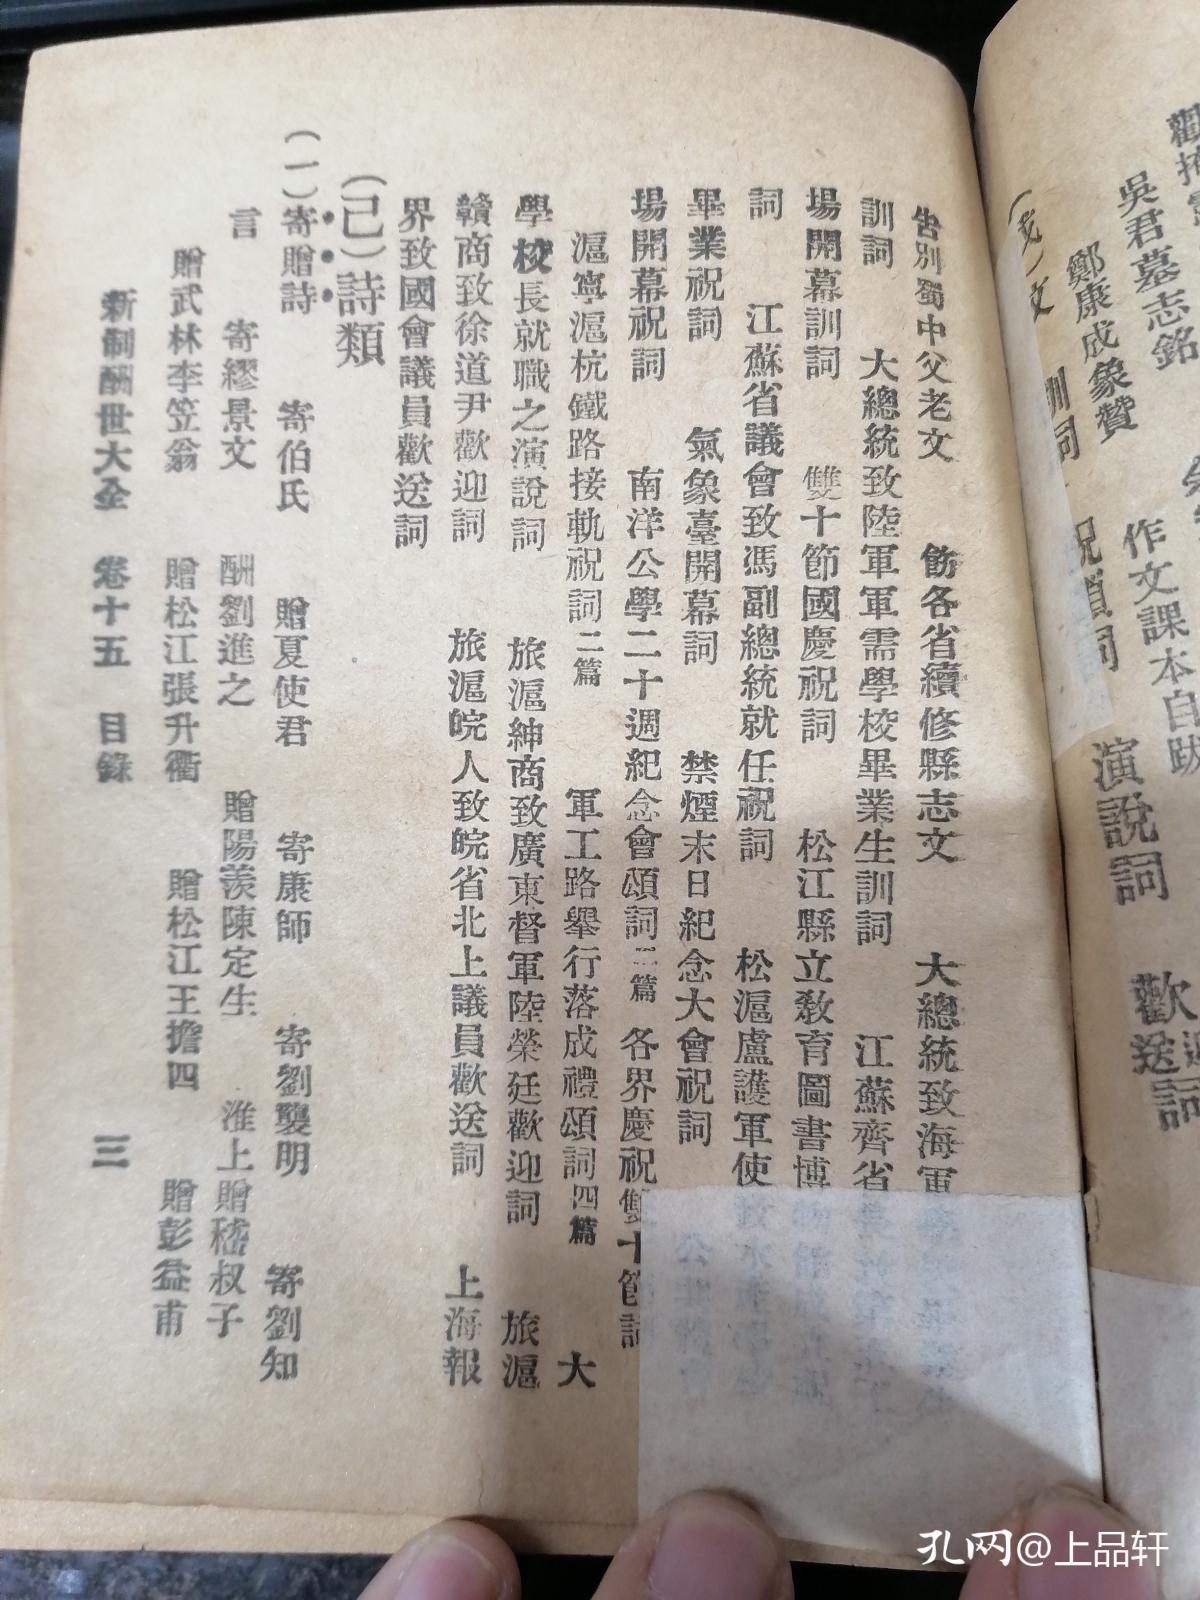 吳君墓志銘
鄭康成象贊 作文課本自跋
演說詞 歡
送詞
告別蜀中父老文 飭各省續修縣志文 大總統致海軍
訓詞 大總統致陸軍軍需學校畢業生訓詞 江蘇齊省
場開幕訓詞 雙十節國慶祝詞 松江縣立教育圖書博
詞 江蘇省議會致馮副總統就任祝詞 松滬盧護軍使
畢業祝詞 氣象臺開幕詞 禁煙末日紀念大會祝詞
場開幕祝詞 南洋公學二十週紀念會頌詞二篇 各界慶祝雙十節詞
滬寧滬杭鐵路接軌祝詞二篇 軍工路舉行落成禮頌詞四篇 大
學校長就職之演說詞 旅滬紳商致廣東督軍陸榮廷歡迎詞 旅滬
贛商致徐道尹歡迎詞 旅滬皖人致皖省北上議員歡送詞 上海報
界致國會議員歡送詞
(己)詩類
(一)寄贈詩 寄伯氏 贈夏使君 寄康師 寄劉襲明 寄劉知
言 寄繆景文 酬劉進之 贈陽羨陳定生 淮上贈嵇叔子
贈武林李笠翁 贈松江張升衢 贈松江王擔四 贈彭益甫
新制酬世大全 卷十五 目錄 三
孔网@上品轩